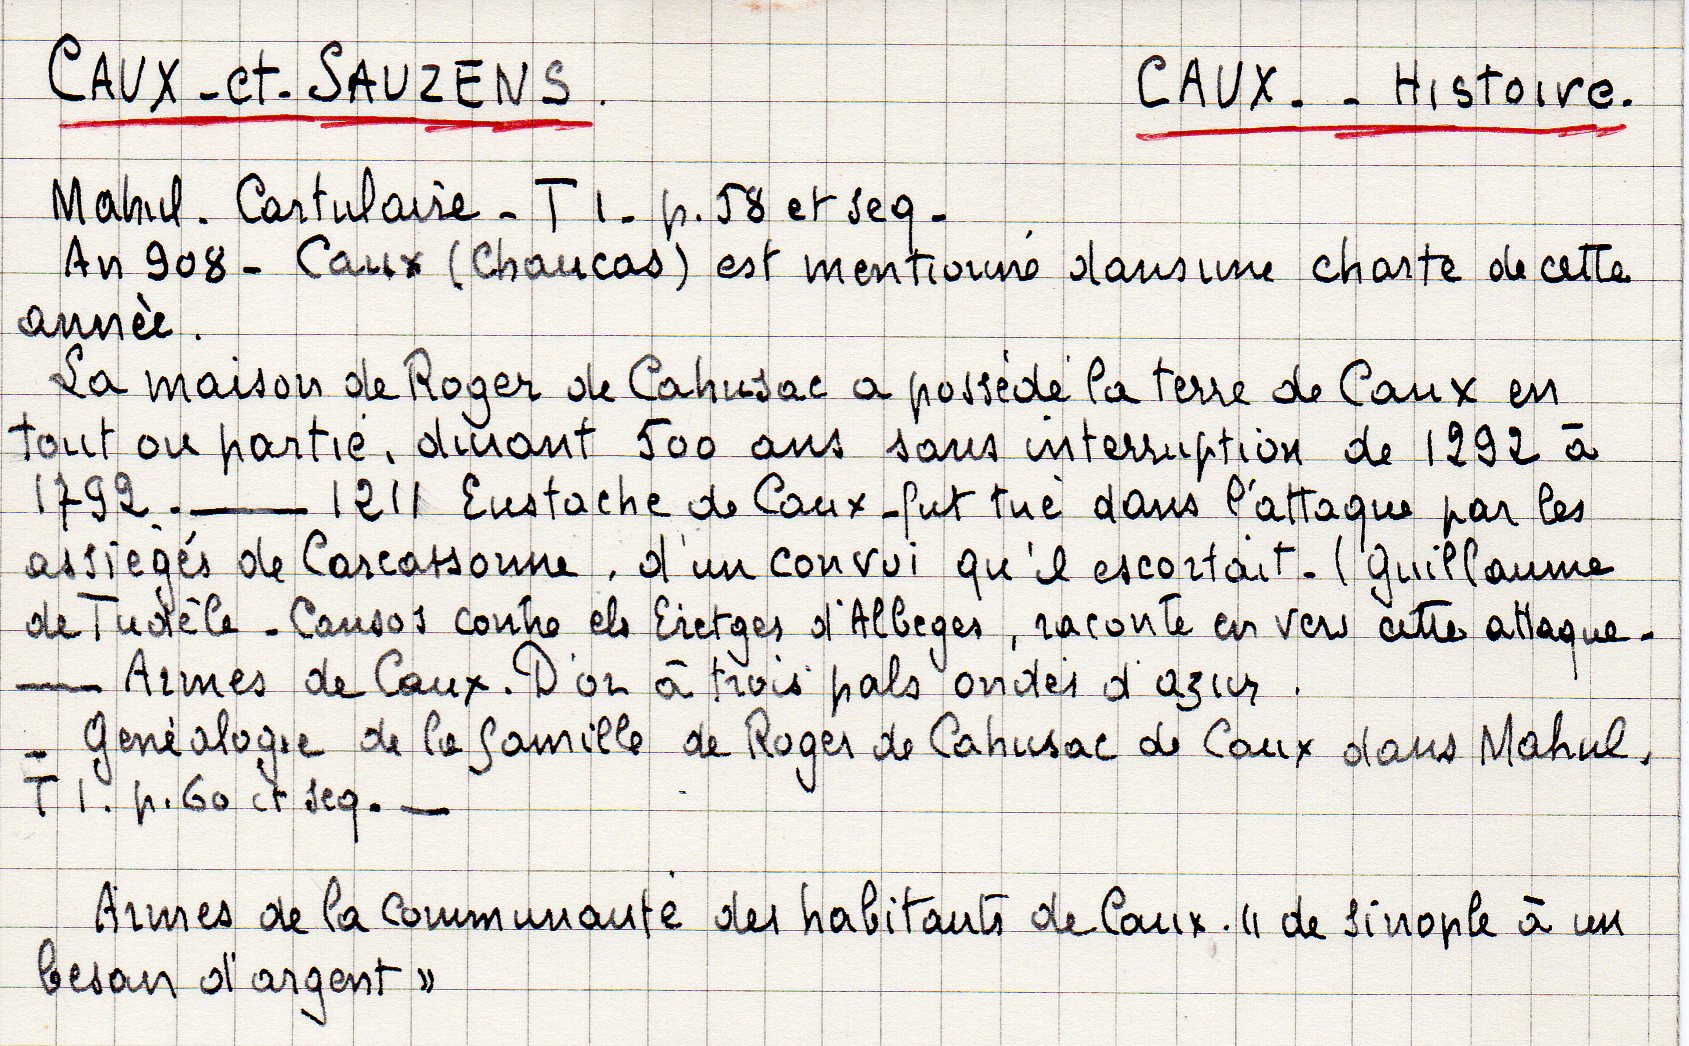 CAUX-et-SAUZENS. CAUX. - Histoire.
Mahul. Cartulaire - T 1 - p. 58 et seq -
An 908 - Caux (Chaucas) est mentionné dans une charte de cette
année.
La maison de Roger de Cahusac a possédé la terre de Caux en
tout ou partie, durant 500 ans sans interruption de 1292 à
1792. —— 1211 Eustache de Caux - fut tué dans l'attaque par les
assiégés de Carcassonne, d'un convoi qu'il escortait - (Guillaume
de Tudèle - Cansos contre els Eretges d'Albeges, raconte en vers cette attaque -
—— Armes de Caux. D'or à trois pals ondés d'azur.
= Genéalogie de la famille de Roger de Cahusac de Caux dans Mahul,
T 1. p. 60 et seq. —
Armes de la Communauté des habitants de Caux. " de sinople à un
besan d'argent »